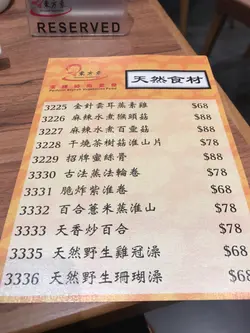 RESERVED
天然食材
3225 金針雲耳蒸素雞 $68
3226 麻辣水煮猴頭菇 $88
3227 麻辣水煮百靈菇 $88
3228 干燒茶樹菇淮山片 $78
3229 招牌蜜絲骨 $88
3330 古法蒸法輪卷 $78
3331 脆炸紫淮卷 $68
3332 百合薏米蒸淮山 $78
3333 天香炒百合 $68
3335 天然野生雞冠澡 $68
3336 天然野生珊瑚澡 $68